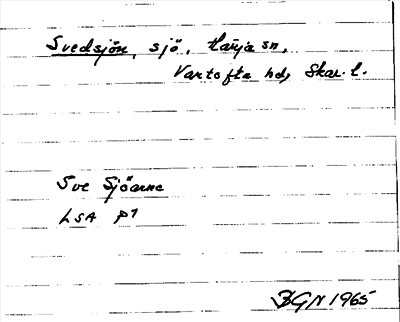 Svedsjön, sjö, Härja sn,
Vartofta hd, Skar. l.
Sve Sjöarne
LSA p 7
BGN 1965